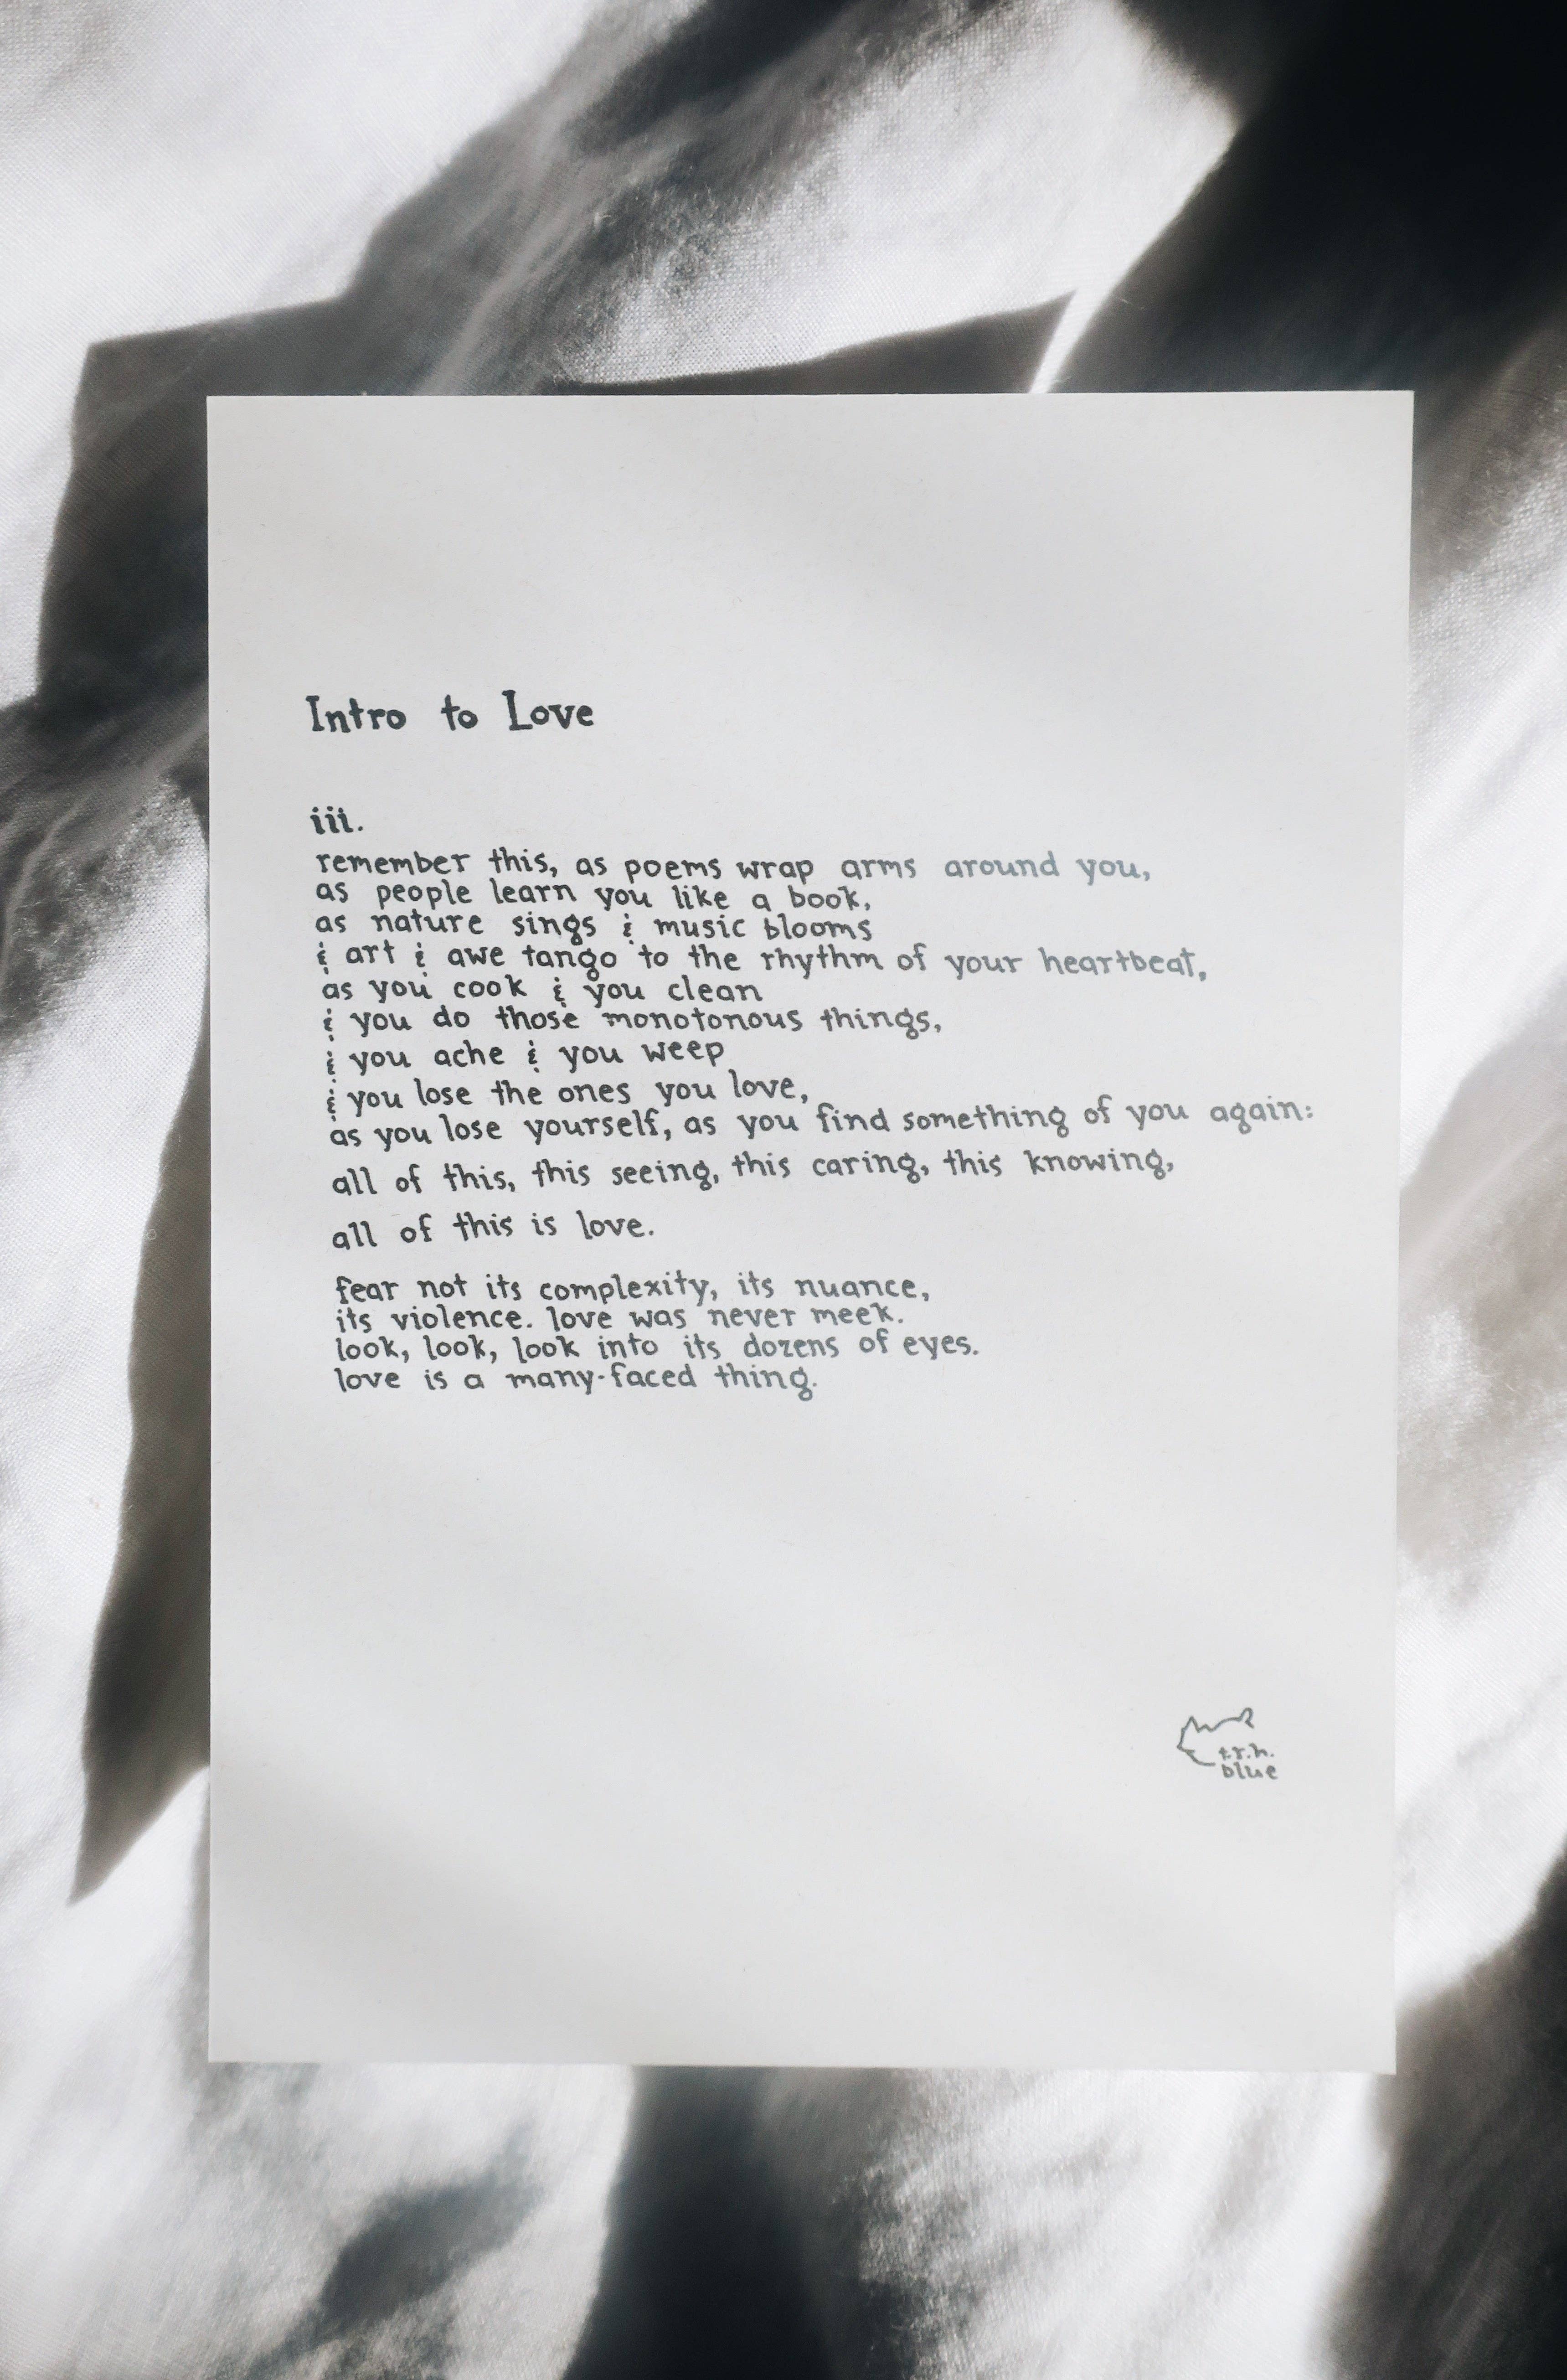 Intro to Love
iii.
remember this, as poems wrap arms around you,
as people learn you like a book,
as nature sings & music blooms
& art & awe tango to the rhythm of your heartbeat,
as you cook & you clean
& you do those monotonous things,
& you ache & you weep
& you lose the ones you love,
as you lose yourself, as you find something of you again:
all of this, this seeing, this caring, this knowing,
all of this is love.
fear not its complexity, its nuance,
its violence. love was never meek.
look, look, look into its dozens of eyes.
love is a many-faced thing.
t.r.h.
blue